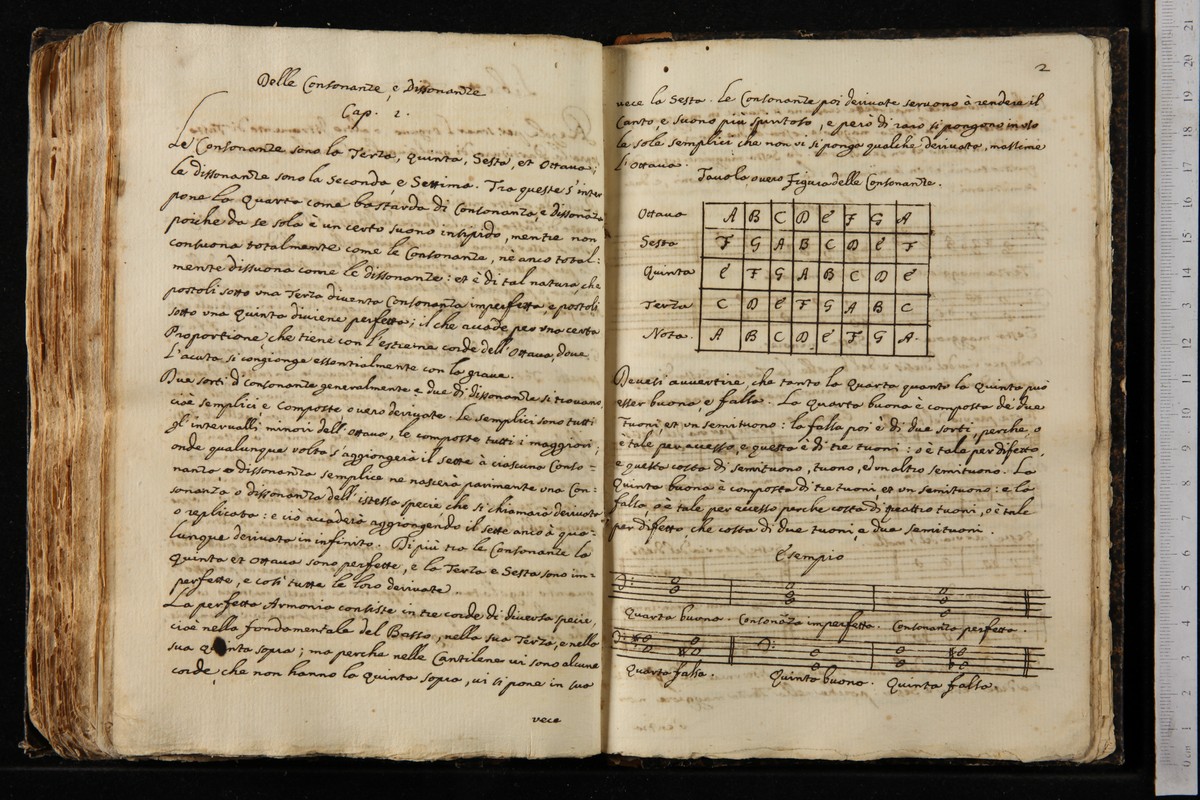 Delle Consonanze, e Dissonanze
Cap. 1.
Le Consonanze sono la Terza, Quinta, Sesta, et Ottava;
le dissonanze sono la Seconda, e Settima. Tra queste s'inter
pone la Quarta come bastarda di Consonanza, e dissonãza
poiche da se sola è un certo suono insipido, mentre non
consuona totalmente come le Consonanze, ne anco total:
mente dissuona come le dissonanze: et è di tal natura, che
postoli sotto una Terza diventa Consonanza imperfetta, e postoli
sotto una Quinta diviene perfetta; il che accade per una certa
Proportione che tiene con l'estreme corde dell'Ottava, dove
l'acuta si congionge essentialmente con la grave.
Due sorti di consonanze generalmente e due di dissonanze si trovano,
cioè semplici e composte, overo derivate. Le semplici sono tutti
gl'intervalli minori dell'Ottava, le composte tutti i maggiori,
onde qualunque volta s'aggiongerà il sette à ciascuna Conso=
nanza o dissonanza semplice ne nascerà parimente una Con:
sonanza o dissonanza dell'istessa specie che si chiamarà derivata
o replicata: e ciò accaderà aggiongendo il sette anco à qua=
lunque derivata in infinito. Di più tra le Consonanze la
Quinta et Ottava sono perfette, e la Terza e Sesta sono im=
perfette, e così tutte le loro derivate
La perfetta Armonia consiste in tre corde di diversa specie,
cioè nella fondamentale del Basso, nella sua Terza, e nella
sua Quinta sopra; ma perche nelle Cantilene vi sono alcune
corde, che non hanno la Quinta sopra, vi si pone in sua
vece
2
vece la Sesta. Le Consonanze poi derivate servono à rendere il
Canto, e suono più spiritoso, e però di raro si pongono in
le sole semplici che non vi si ponga qualche derivata, massime
l'Ottava.
Tavola overo Figura delle Consonanze.
Ottava A B C D E F G A
Sesta F G A B C D E F
Quinta E F G A B C D E
Terza C D E F G A B C
Nota. A B C D E F G A.
Devesi avvertire, che tanto la Quarta quanto la Quinta può
esser buona, e falsa. La Quarta buona è composta de due
Tuoni, et un semituono: la falsa poi è di due sorti, perche, o
è tale per eccesso, e questa è di tre tuoni: o è tale per difetto,
e questa costa di semituono, tuono, et un altro semituono. La
Quinta buona è composta di tre tuoni, et un semituono: e la
falsa, o è tale per eccesso perche costa di quattro tuoni, o è tale
per difetto, che costa di due tuoni, e due semituoni.
Esempio
Quarta buona. Consonãza imperfetta. Consonanza perfetta.
Quarta falsa. Quinta buona. Quinta falsa.